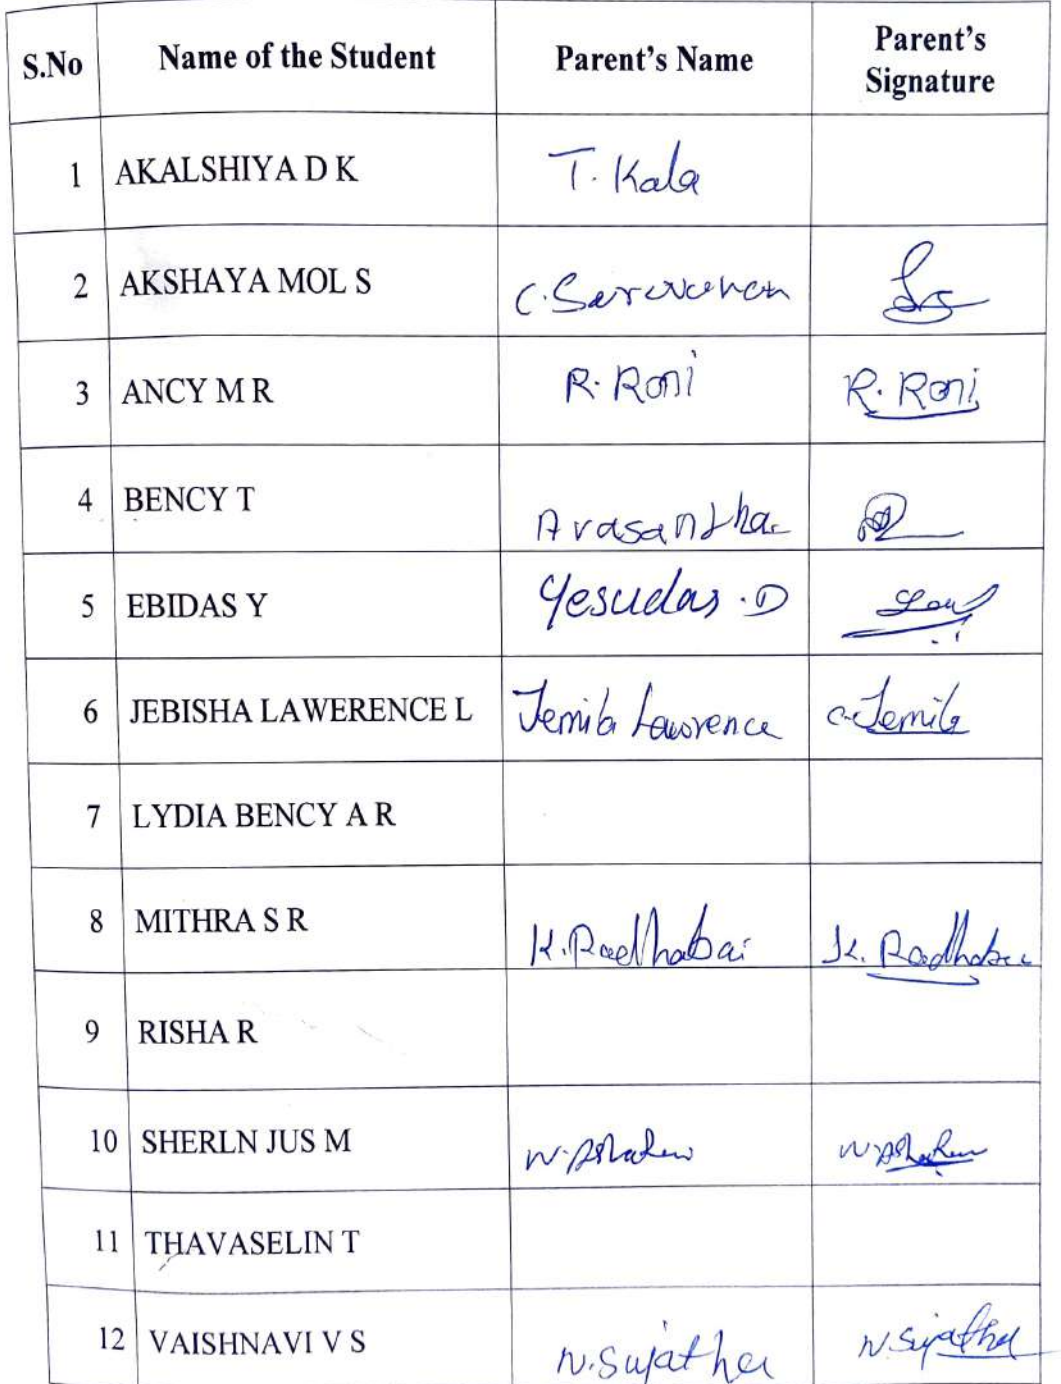 S.No Name of the Student Parent's Name Parent's Signature
1 AKALSHIYA D K T. Kala
2 AKSHAYA MOL S C. Saravanan
3 ANCY M R R. Roni R. Roni
4 BENCY T A vasantha
5 EBIDAS Y Yesudas .D
6 JEBISHA LAWERENCE L Jemila Lawrence C. Jemila
7 LYDIA BENCY A R
8 MITHRA S R K. Radhabai K. Radhabai
9 RISHA R
10 SHERLN JUS M
11 THAVASELIN T
12 VAISHNAVI V S N. Sujatha N. Sujatha